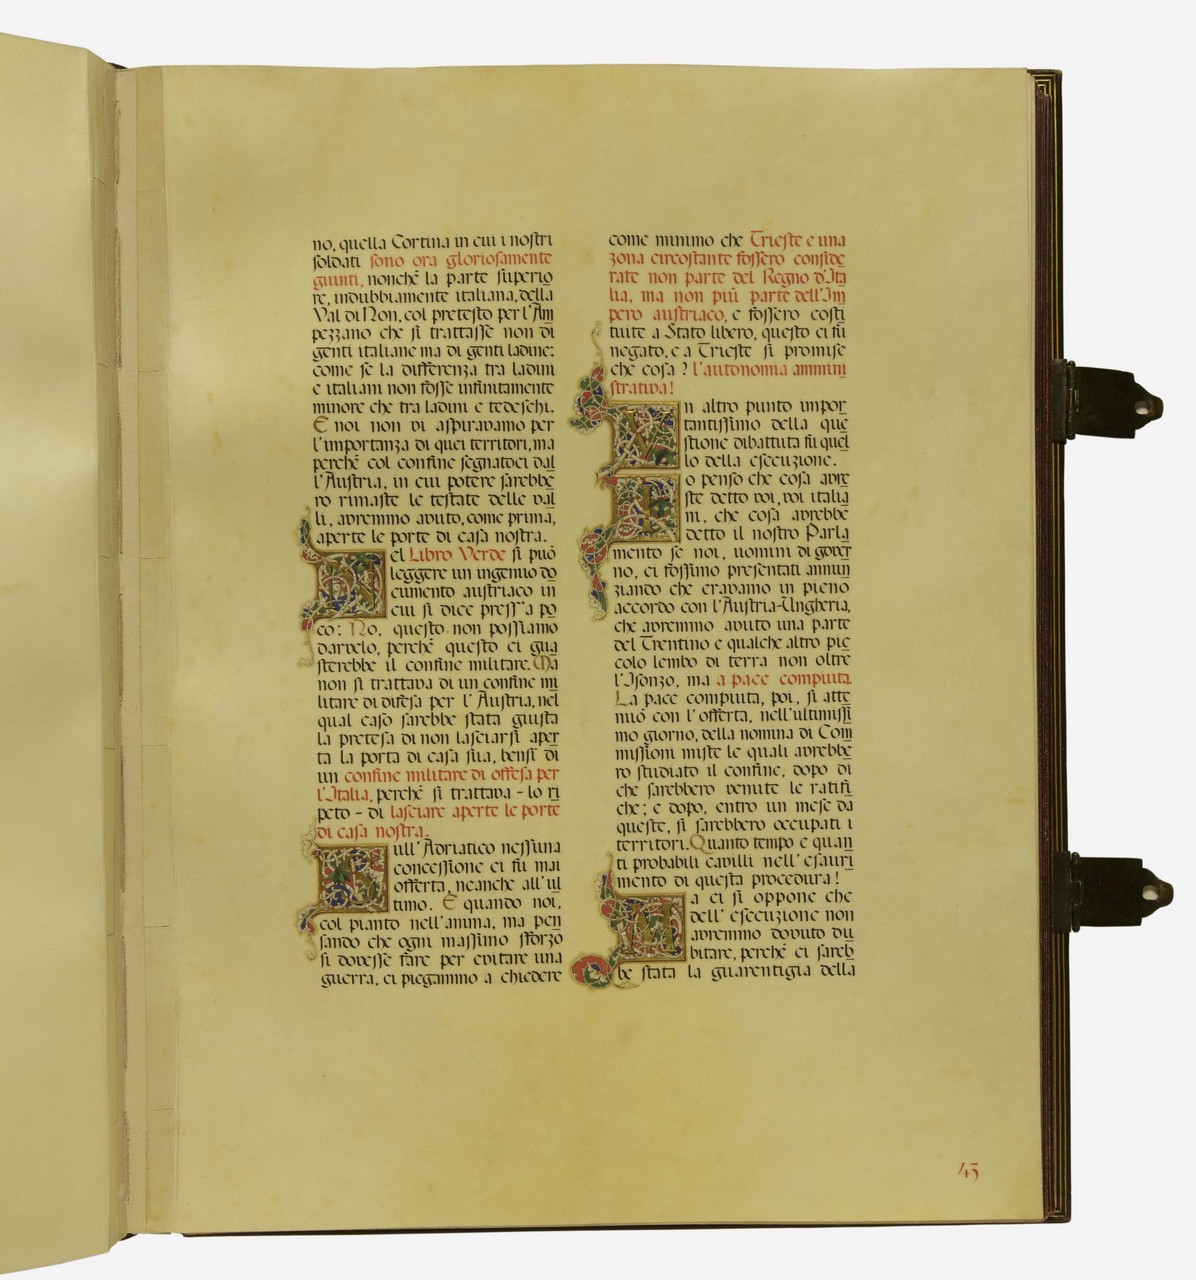 no, quella Cortina in cui i nostri
soldati sono ora gloriosamente
giunti, nonché la parte superio
re, indubbiamente italiana, della
Val di Non, col pretesto per l'Am
pezzano che si trattasse non di
genti italiane ma di genti ladine:
come se la differenza tra ladini
e italiani non fosse infinitamente
minore che tra ladini e tedeschi.
E noi non vi aspiravamo per
l'importanza di quei territori, ma
perché col confine segnatoci dal
l'Austria, in cui potere sarebbe
ro rimaste le testate delle val
li, avremmo avuto, come prima,
aperte le porte di casa nostra.
Nel Libro Verde si può
leggere un ingenuo do
cumento austriaco in
cui si dice press'a po
co: No, questo non possiamo
darvelo, perché questo ci gua
sterebbe il confine militare. Ma
non si trattava di un confine mi
litare di difesa per l'Austria, nel
qual caso sarebbe stata giusta
la pretesa di non lasciarsi aper
ta la porta di casa sua, bensì di
un confine militare di offesa per
l'Italia, perché si trattava - lo ri
peto - di lasciare aperte le porte
di casa nostra.
Sull'Adriatico nessuna
concessione ci fu mai
offerta, neanche all'ul
timo. E quando noi,
col pianto nell'anima, ma pen
sando che ogni massimo sforzo
si dovesse fare per evitare una
guerra, ci piegammo a chiedere
come minimo che Trieste e una
zona circostante fossero conside
rate non parte del Regno d'Ita
lia, ma non più parte dell'Im
pero austriaco, e fossero costi
tuite a Stato libero, questo ci fu
negato, e a Trieste si promise
che cosa? l'autonomia ammini
strativa!
Un altro punto impor
tantissimo della que
stione dibattuta fu quel
lo della esecuzione.
Io penso che cosa avre
ste detto voi, voi italia
ni, che cosa avrebbe
detto il nostro Parla
mento se noi, uomini di gover
no, ci fossimo presentati annun
ziando che eravamo in pieno
accordo con l'Austria-Ungheria,
che avremmo avuto una parte
del Trentino e qualche altro pic
colo lembo di terra non oltre
l'Isonzo, ma a pace compiuta.
La pace compiuta, poi, si atte
nuò con l'offerta, nell'ultimissi
mo giorno, della nomina di Com
missioni miste le quali avrebbe
ro studiato il confine, dopo di
che sarebbero venute le ratifi
che; e dopo, entro un mese da
queste, si sarebbero occupati i
territori. Quanto tempo e quan
ti probabili cavilli nell'esauri
mento di questa procedura!
Ma ci si oppone che
dell'esecuzione non
avremmo dovuto du
bitare, perché ci sareb
be stata la guarentigia della
43